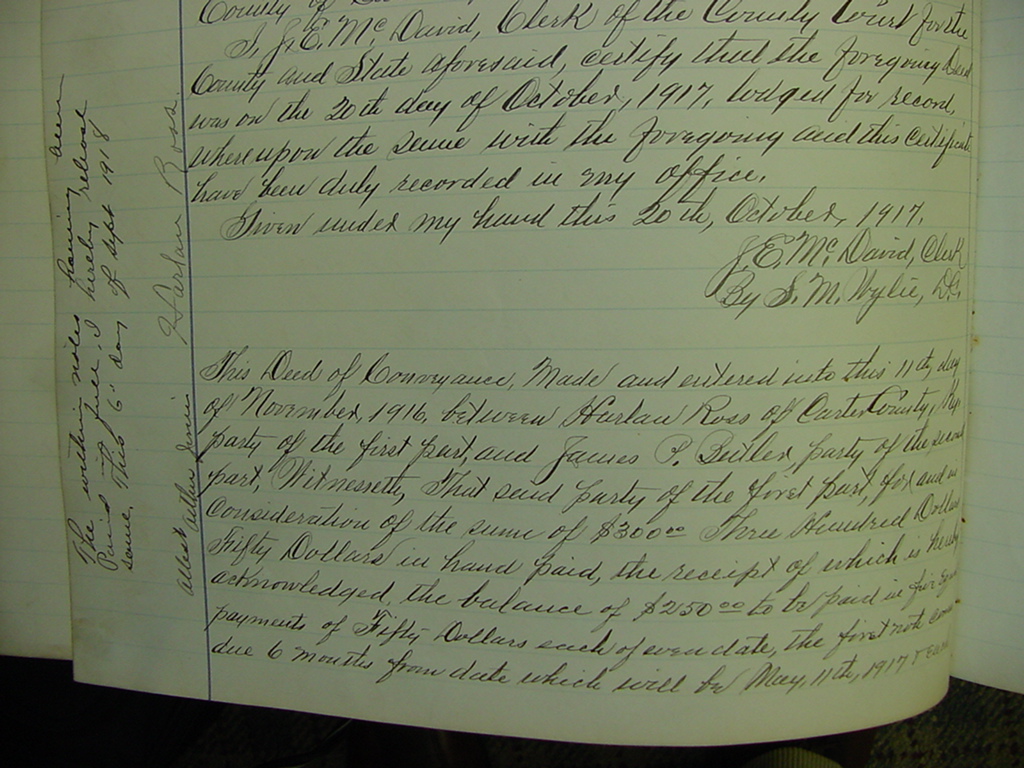 County of
I, J. E. McDavid, Clerk of the County Court for the
County and State aforesaid, certify that the foregoing Deed
was on the 20th day of October, 1917, lodged for record,
whereupon the same with the foregoing and this certificate
have been duly recorded in my office.
Given under my hand this 20th, October, 1917.
J. E. McDavid, Clerk
By S. M. Wylie, D.C.
This Deed of Conveyance, Made and entered into this 11th, day
of November, 1916, between Harlan Ross of Carter County, Ky.
party of the first part, and James P. Butler, party of the second
part, Witnesseth, That said party of the first part, for and in
Consideration of the sum of $300.00 Three Hundred Dollars
Fifty Dollars in hand paid, the receipt of which is hereby
acknowledged, the balance of $250.00 to be paid in five equal
payments of Fifty Dollars each of even date, the first note
due 6 months from date which will be May, 11th, 1917
The within notes having been
Paid in full I hereby release
same. This 6 day of Sept 1918
Harlan Ross
attest